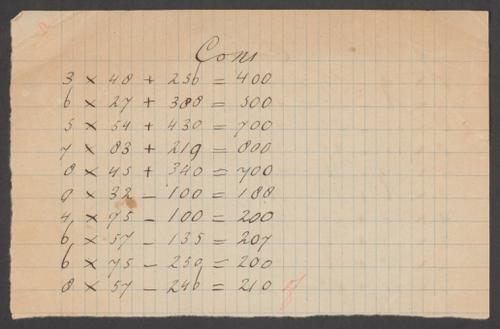 3 × 48 + 256 = 400
6 × 27 + 388 = 500
5 × 54 + 430 = 700
7 × 83 + 219 = 800
8 × 45 + 340 = 700
9 × 32 – 100 = 188
4 × 75 – 100 = 200
6 × 57 – 135 = 207
6 × 75 – 250 = 200
8 × 57 – 246 = 210